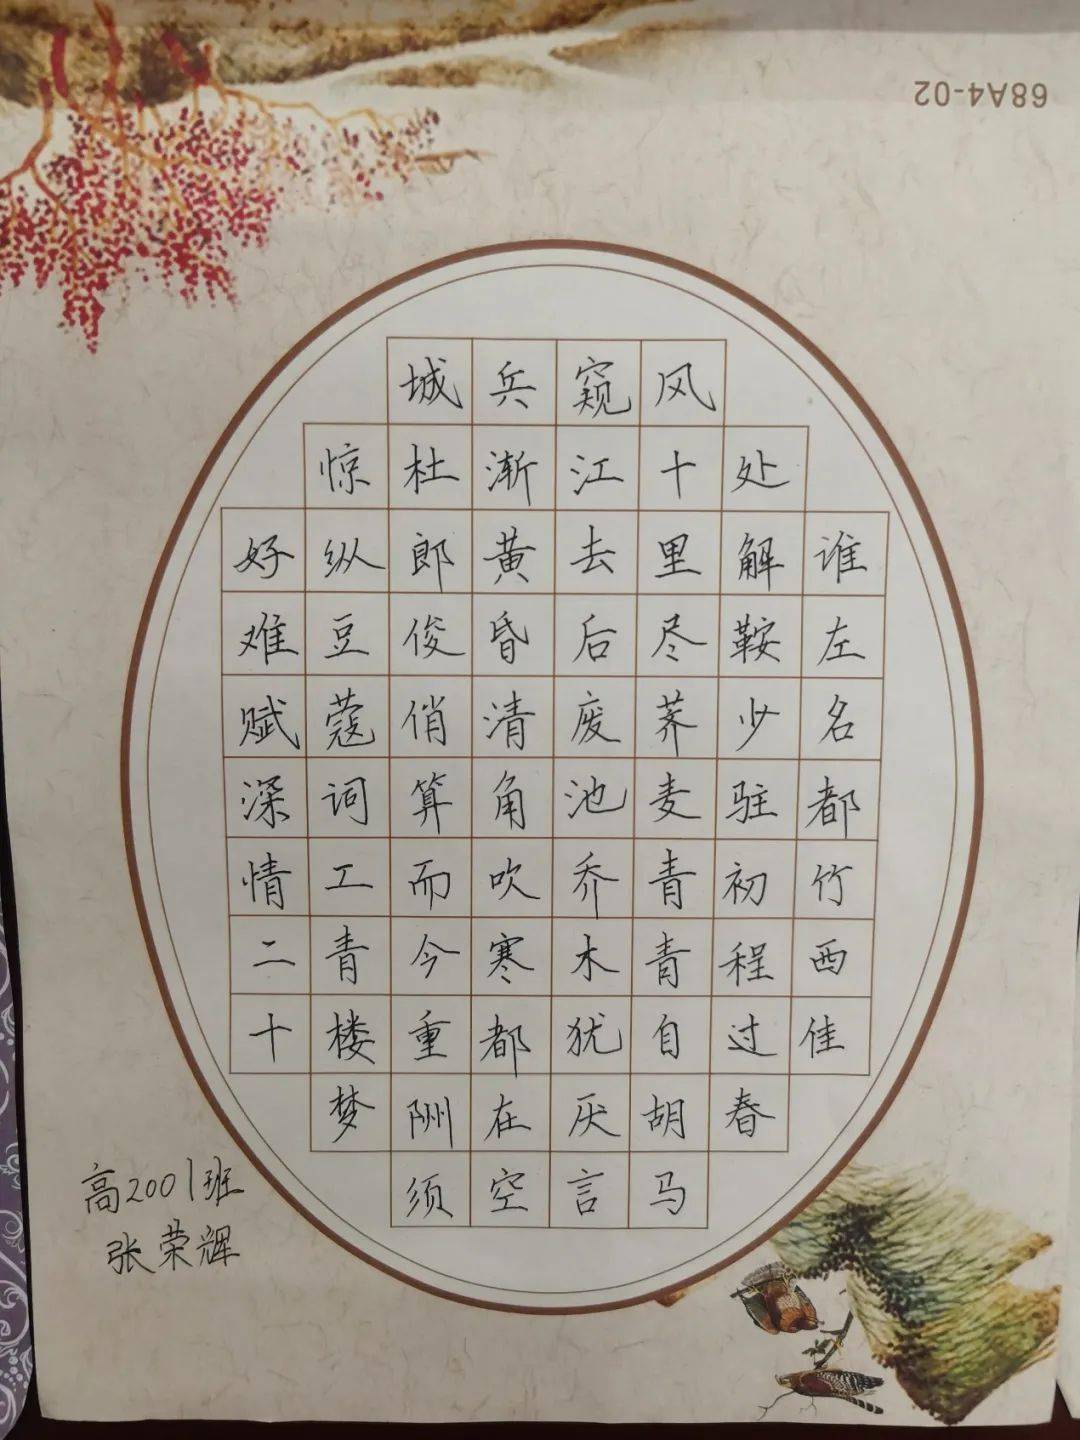 68A4-02
谁左名都竹西佳
处解鞍少驻初程过春
风十里尽荠麦青青自胡马
窥江去后废池乔木犹厌言
兵渐黄昏清角吹寒都在空
城杜郎俊俏算而今重须
惊纵豆蔻词工青楼梦
好难赋深情二十
高2001班
张荣辉